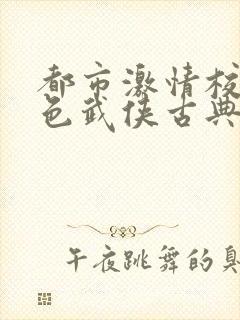 都市激情校
色武侠古典
午夜跳舞的